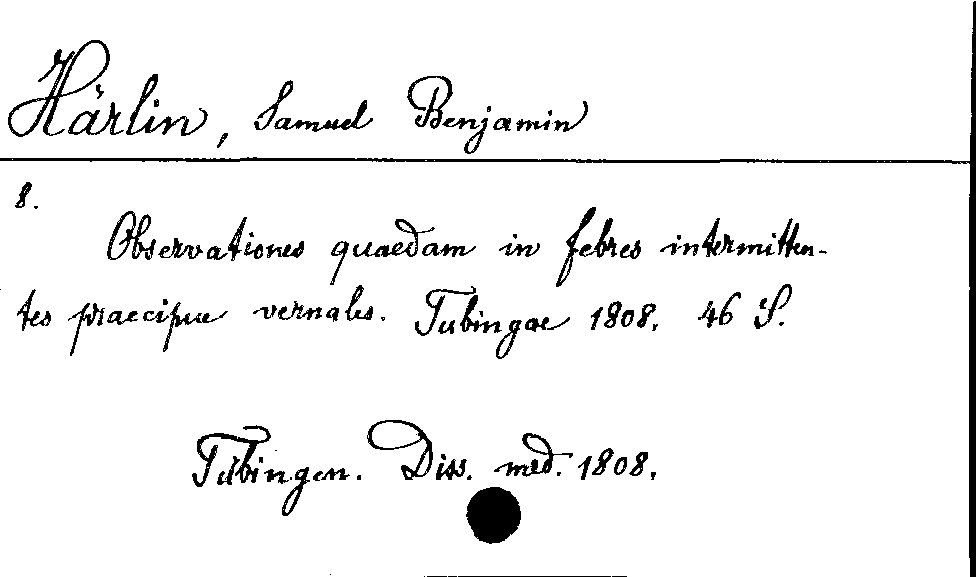 Härlin, Samuel Benjamin
8.
Observationes quaedam in febres intermitten-
tes praecipue vernales. Tubingae 1808. 46 S.
Tübingen. Diss. med. 1808.